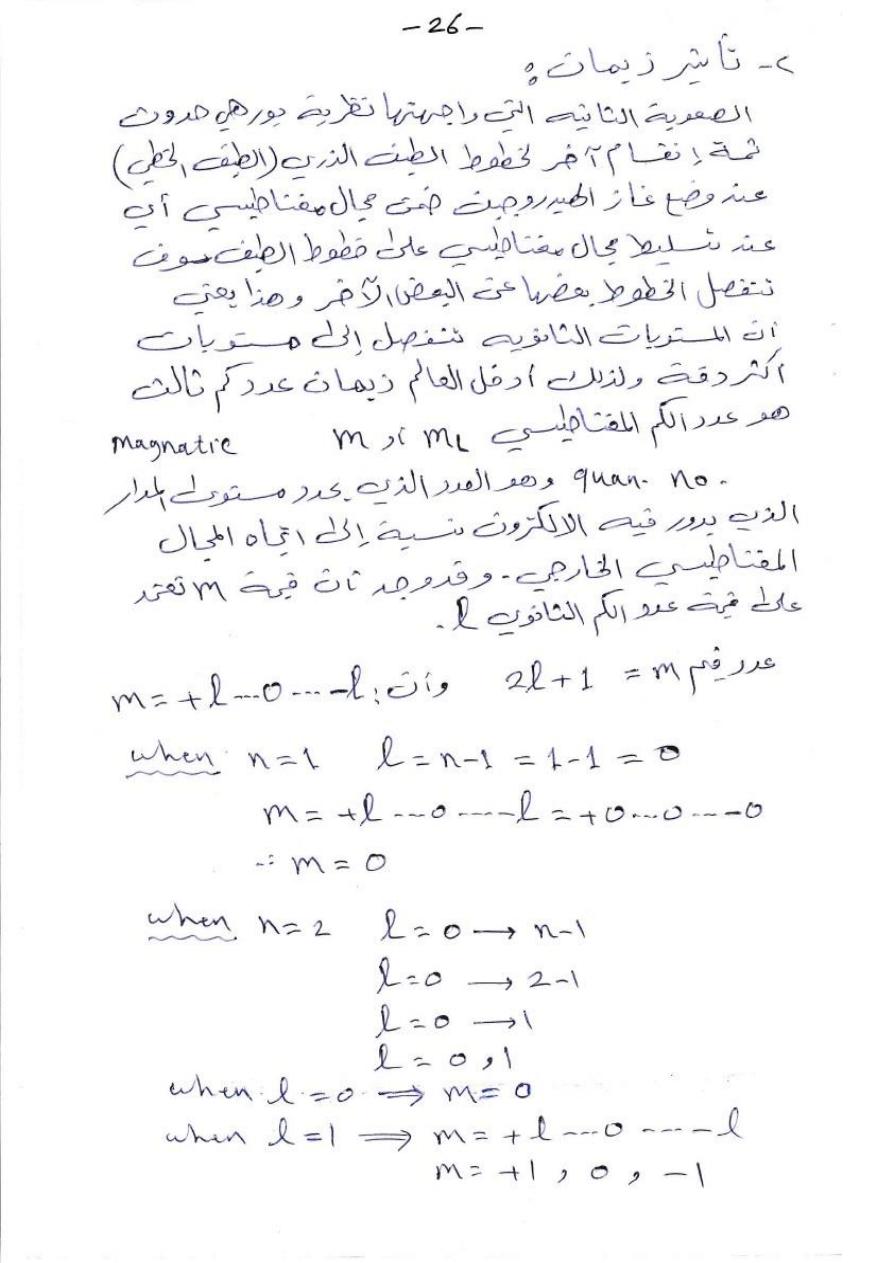 -26-
٢- تأثير زيمان:
الصعوبة الثانيه التي واجهتها نظرية بور هي حدوث
ثمة إنقسام آخر لخطوط الطيف الذري (الطيف الخطي)
عند وضع غاز الهيدروجين ضمن مجال مغناطيسي أي
عند تسليط مجال مغناطيسي على خطوط الطيف سوف
تنفصل الخطوط بعضها عن البعض الآخر وهذا يعني
أن المستويات الثانويه تنفصل إلى مستويات
أكثر دقة ولذلك أدخل العالم زيمان عدد كم ثالث
هو عدد الكم المغناطيسي mL أو m Magnatic
quan. no. وهو العدد الذي يحدد مستوى المدار
الذي يدور فيه الالكترون نسبة إلى اتجاه المجال
المغناطيسي الخارجي. وقد وجد أن قيمة m تعتمد
على قيمة عدد الكم الثانوي l.
عدد قيم m = 2l+1 وأن: m = +l...0...-l
when n=1 l = n-1 = 1-1 = 0
m = +l ---0-----l = +0...0----0
∴ m = 0
when n=2 l=0 → n-1
l=0 → 2-1
l=0 → 1
l = 0, 1
when l=0 ⇒ m=0
when l=1 ⇒ m= +l ---0-----l
m= +1, 0, -1